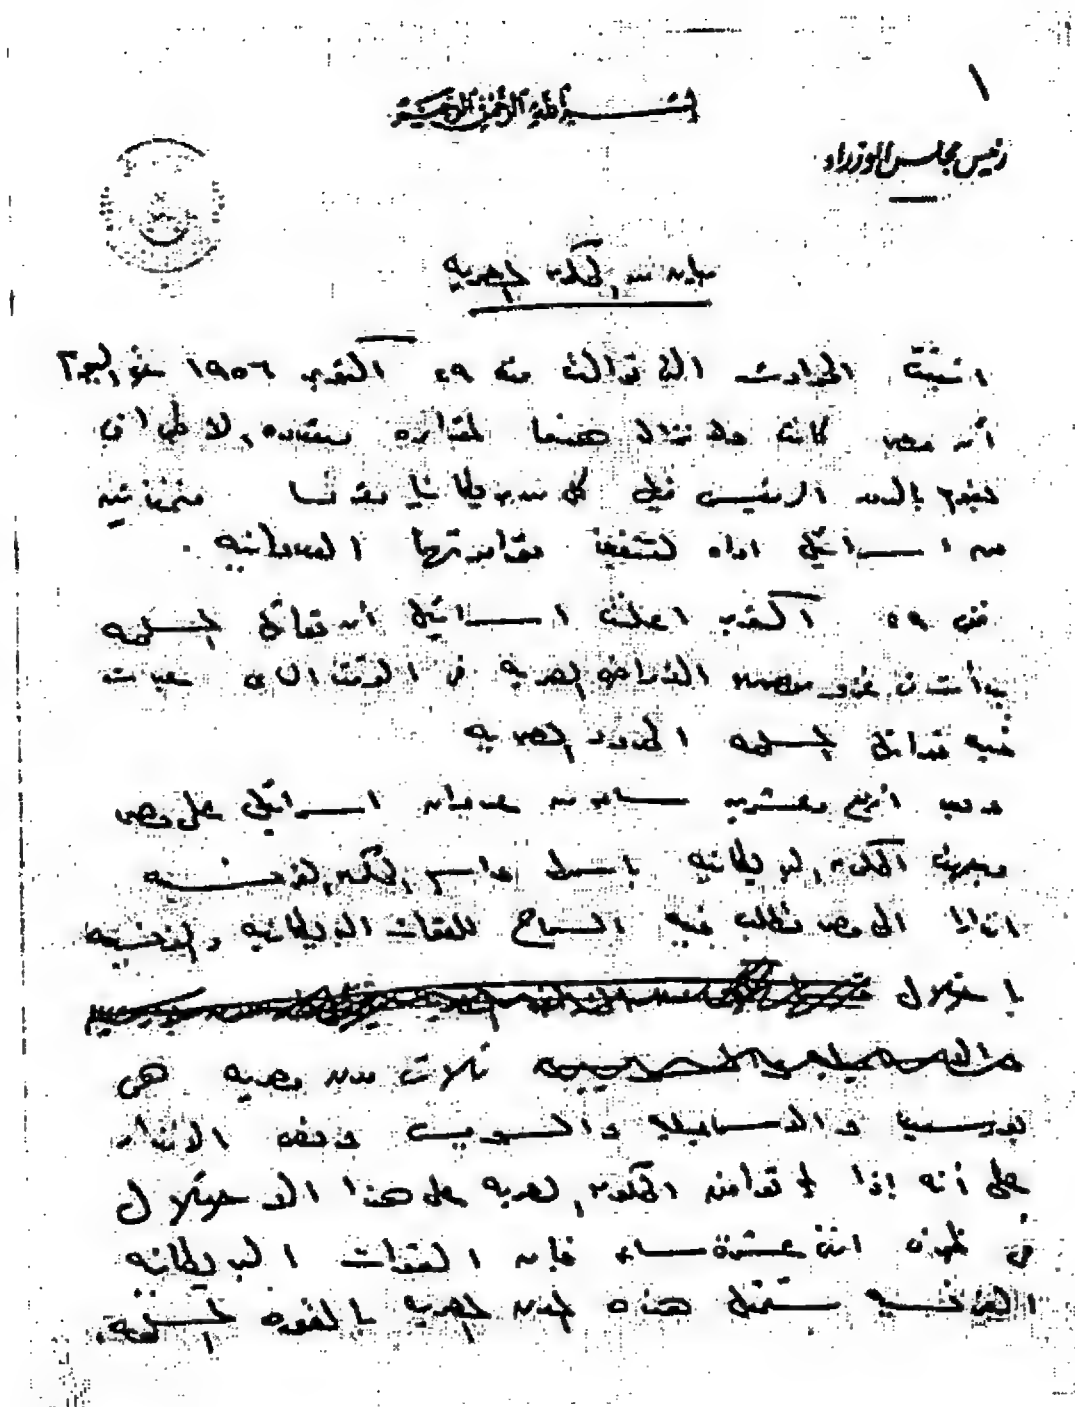 ١
بسم الله الرحمن الرحيم
رئيس مجلس الوزراء
بيان من الحكومة المصرية
اثبتت الحوادث التى توالت منذ ٢٩ اكتوبر ١٩٥٦ حتى اليوم
أن مصر كانت ولا تزال هدفا لمؤامره متعدده الاطراف
تقوم بالدور الرئيسى فيها كل من بريطانيا وفرنسا متخذتين
من اسرائيل اداه لتنفيذ مؤامرتها العدوانيه .
ففى ٢٩ اكتوبر اعلنت اسرائيل أن قواتها المسلحه
بدأت فى غزو الاراضى المصريه فى الوقت الذى عبرت
فيه قواتها المسلحه الحدود المصريه
وبعد اربع وعشرين ساعه من عدوان اسرائيل على مصر
وجهت الحكومه البريطانيه باسمها واسم الحكومه الفرنسيه
انذارا الى مصر تطلب فيه السماح للقوات البريطانيه والفرنسيه
باحتلال
ثلاث مدن مصريه هى
بورسعيد والاسماعيليه والسويس ونص الانذار
على أنه إذا لم توافق الحكومه المصريه على هذا الاحتلال
فى ظرف اثنى عشرة ساعه فإن القوات البريطانيه
الفرنسيه ستحتل هذه المدن المصريه بالقوه المسلحه.